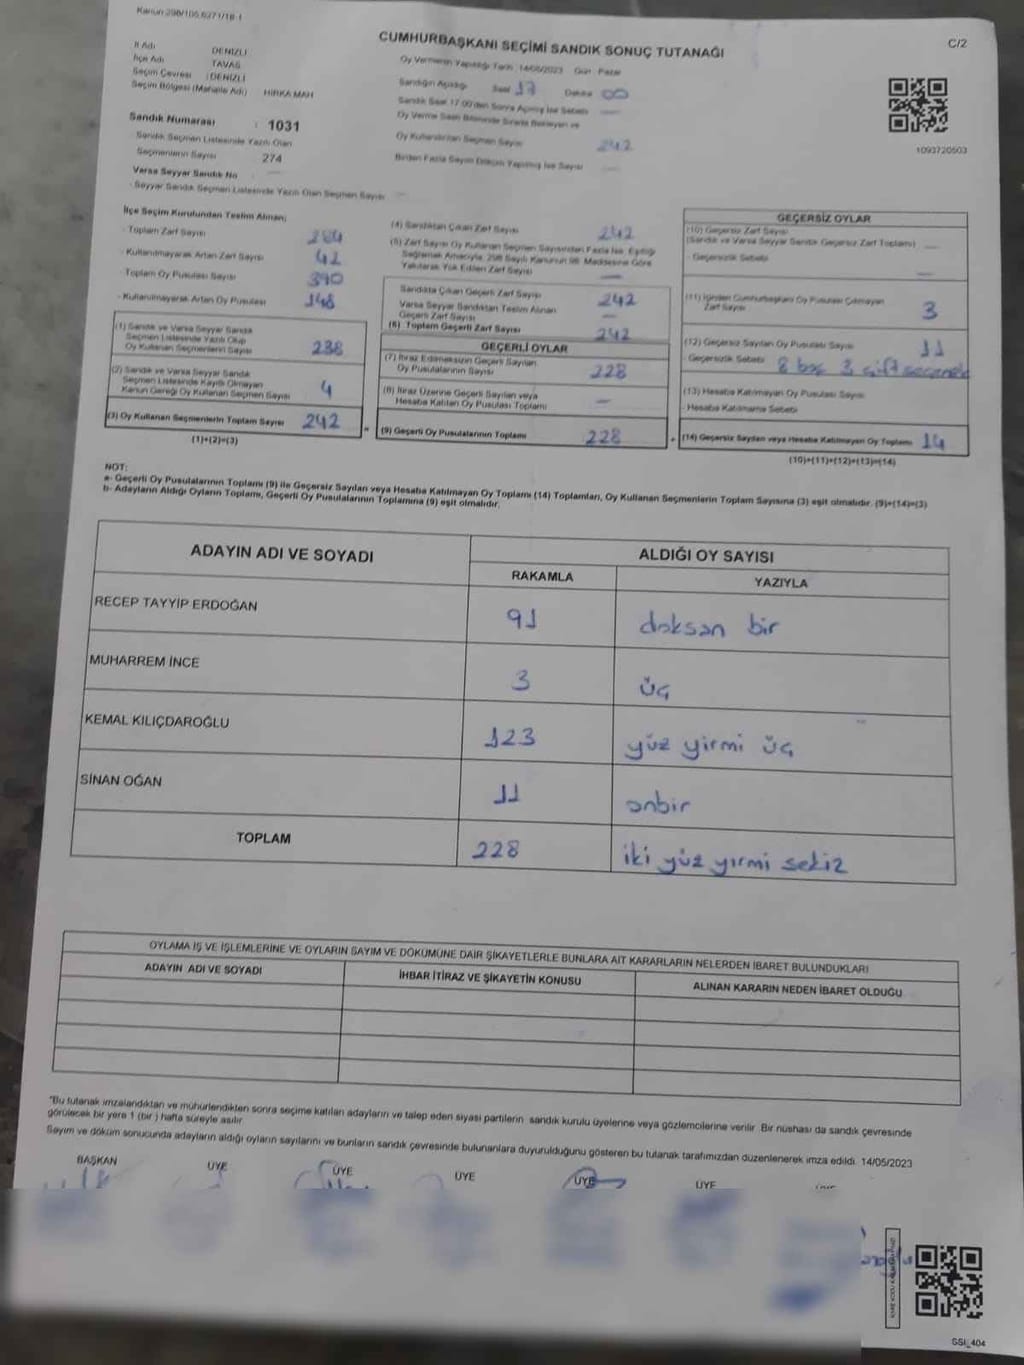 Kanun:298/105,6271/18-1
C/2
CUMHURBAŞKANI SEÇİMİ SANDIK SONUÇ TUTANAĞI
İl Adı DENİZLİ
İlçe Adı TAVAS
Seçim Çevresi : DENİZLİ
Seçim Bölgesi (Mahalle Adı) HIRKA MAH
Sandık Numarası : 1031
Sandık Seçmen Listesinde Yazılı Olan
Seçmenlerin Sayısı 274
Varsa Seyyar Sandık No
- Seyyar Sandık Seçmen Listesinde Yazılı Olan Seçmen Sayısı
Oy Vermenin Yapıldığı Tarih : 14/05/2023 Gün : Pazar
Sandığın Açıldığı Saat 17 Dakika 00
Sandık Saat 17.00'den Sonra Açılmış İse Sebebi
Oy Verme Saati Bitiminde Sırada Bekleyen ve
Oy Kullandırılan Seçmen Sayısı 242
Birden Fazla Sayım Döküm Yapılmış İse Sayısı
1093720503
İlçe Seçim Kurulundan Teslim Alınan;
- Toplam Zarf Sayısı 284
- Kullanılmayarak Artan Zarf Sayısı 42
- Toplam Oy Pusulası Sayısı 390
- Kullanılmayarak Artan Oy Pusulası 148
(1) Sandık ve Varsa Seyyar Sandık
Seçmen Listesinde Yazılı Olup
Oy Kullanan Seçmenlerin Sayısı 238
(2) Sandık ve Varsa Seyyar Sandık
Seçmen Listesinde Kayıtlı Olmayan
Kanun Gereği Oy Kullanan Seçmen Sayısı 4
(3) Oy Kullanan Seçmenlerin Toplam Sayısı 242
(1)+(2)=(3)
(4) Sandıktan Çıkan Zarf Sayısı 242
(5) Zarf Sayısı Oy Kullanan Seçmen Sayısından Fazla İse, Eşitliği
Sağlamak Amacıyla, 298 Sayılı Kanunun 98. Maddesine Göre
Yakılarak Yok Edilen Zarf Sayısı
Sandıkta Çıkan Geçerli Zarf Sayısı 242
Varsa Seyyar Sandıktan Teslim Alınan
Geçerli Zarf Sayısı
(6) Toplam Geçerli Zarf Sayısı 242
GEÇERLİ OYLAR
(7) İtiraz Edilmeksizin Geçerli Sayılan
Oy Pusulalarının Sayısı 228
(8) İtiraz Üzerine Geçerli Sayılan veya
Hesaba Katılan Oy Pusulası Toplamı
(9) Geçerli Oy Pusulalarının Toplamı 228
GEÇERSİZ OYLAR
(10) Geçersiz Zarf Sayısı
(Sandık ve Varsa Seyyar Sandık Geçersiz Zarf Toplamı)
- Geçersizlik Sebebi
(11) İçinden Cumhurbaşkanı Oy Pusulası Çıkmayan
Zarf Sayısı 3
(12) Geçersiz Sayılan Oy Pusulası Sayısı 11
- Geçersizlik Sebebi 8 boş 3 çift seçenek
(13) Hesaba Katılmayan Oy Pusulası Sayısı
- Hesaba Katılmama Sebebi
(14) Geçersiz Sayılan veya Hesaba Katılmayan Oy Toplamı 14
(10)+(11)+(12)+(13)=(14)
NOT:
a- Geçerli Oy Pusulalarının Toplamı (9) ile Geçersiz Sayılan veya Hesaba Katılmayan Oy Toplamı (14) Toplamları, Oy Kullanan Seçmenlerin Toplam Sayısına (3) eşit olmalıdır. (9)+(14)=(3)
b- Adayların Aldığı Oyların Toplamı, Geçerli Oy Pusulalarının Toplamına (9) eşit olmalıdır.
ADAYIN ADI VE SOYADI ALDIĞI OY SAYISI
RAKAMLA YAZIYLA
RECEP TAYYİP ERDOĞAN 91 doksan bir
MUHARREM İNCE 3 üç
KEMAL KILIÇDAROĞLU 123 yüz yirmi üç
SİNAN OĞAN 11 onbir
TOPLAM 228 iki yüz yirmi sekiz
OYLAMA İŞ VE İŞLEMLERİNE VE OYLARIN SAYIM VE DÖKÜMÜNE DAİR ŞİKAYETLERLE BUNLARA AİT KARARLARIN NELERDEN İBARET BULUNDUKLARI
ADAYIN ADI VE SOYADI İHBAR İTİRAZ VE ŞİKAYETİN KONUSU ALINAN KARARIN NEDEN İBARET OLDUĞU
"Bu tutanak imzalandıktan ve mühürlendikten sonra seçime katılan adayların ve talep eden siyasi partilerin sandık kurulu üyelerine veya gözlemcilerine verilir. Bir nüshası da sandık çevresinde
görülecek bir yere 1 (bir) hafta süreyle asılır.
Sayım ve döküm sonucunda adayların aldığı oyların sayılarını ve bunların sandık çevresinde bulunanlara duyurulduğunu gösteren bu tutanak tarafımızdan düzenlenerek imza edildi. 14/05/2023
BAŞKAN ÜYE ÜYE ÜYE ÜYE ÜYE
SSI_404